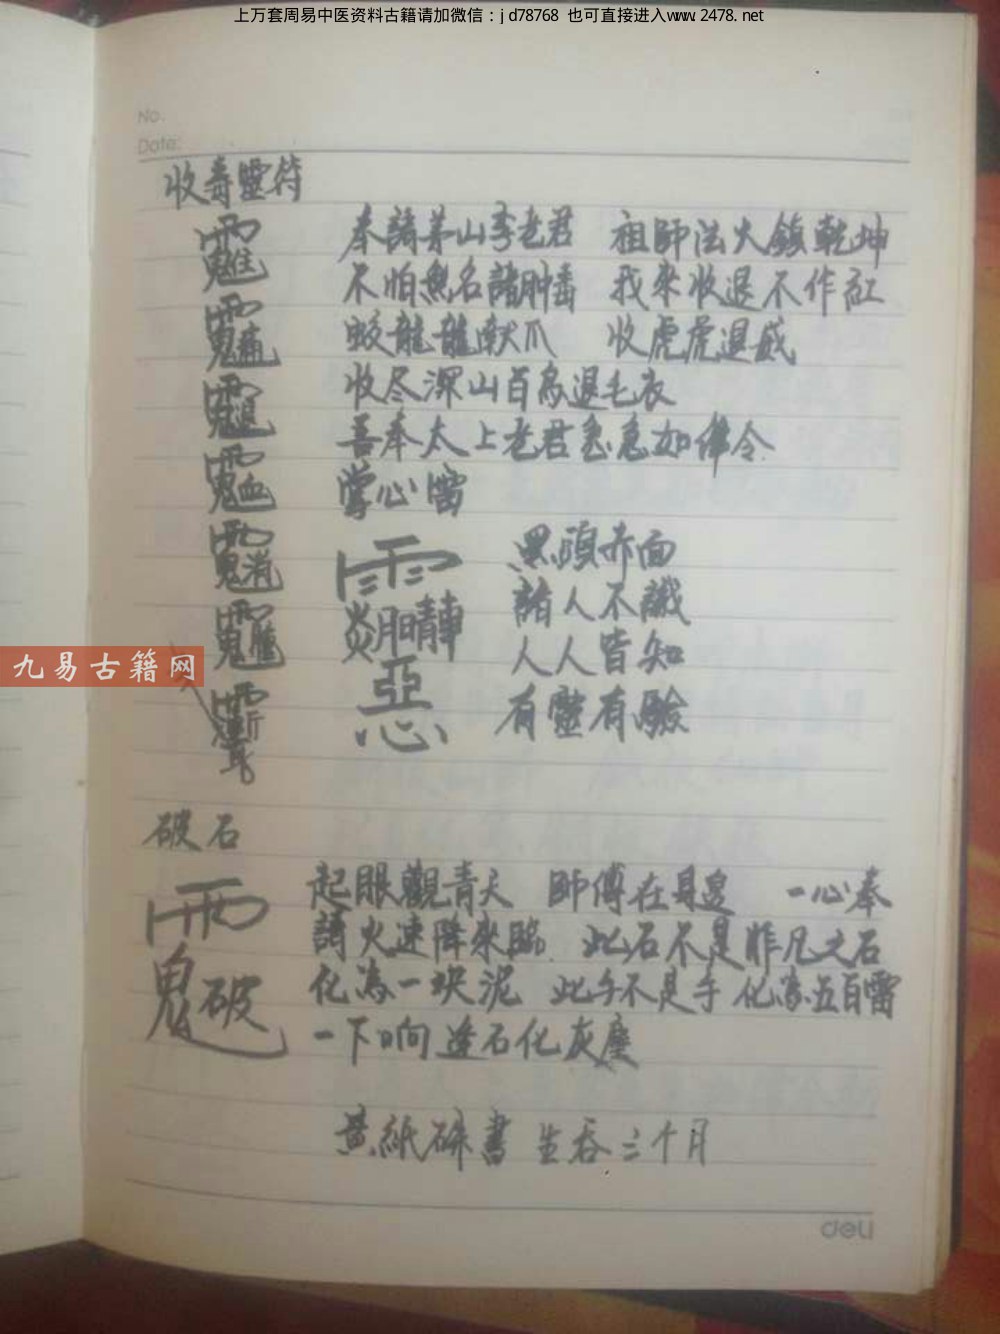 上万套周易中医资料古籍请加微信：jd78768 也可直接进入www.2478.net
No.
Date:
收毒靈符
奉請茅山李老君 祖師法火鎮乾坤
不怕無名諸肿毒 我來收退不作紅
蛟龍龍献爪 收虎虎退威
收尽深山百鳥退毛衣
吾奉太上老君急急如律令
掌心雷
黑頭赤面
諸人不識
人人皆知
有靈有驗
惡
九易古籍网
破石
起眼觀青天 師傅在身邊 一心奉
請火速降來臨 此石不是非凡之石
化為一块泥 此手不是手 化為五百雷
一下响 逢石化灰塵
黄紙硃書 生吞三个月
deli